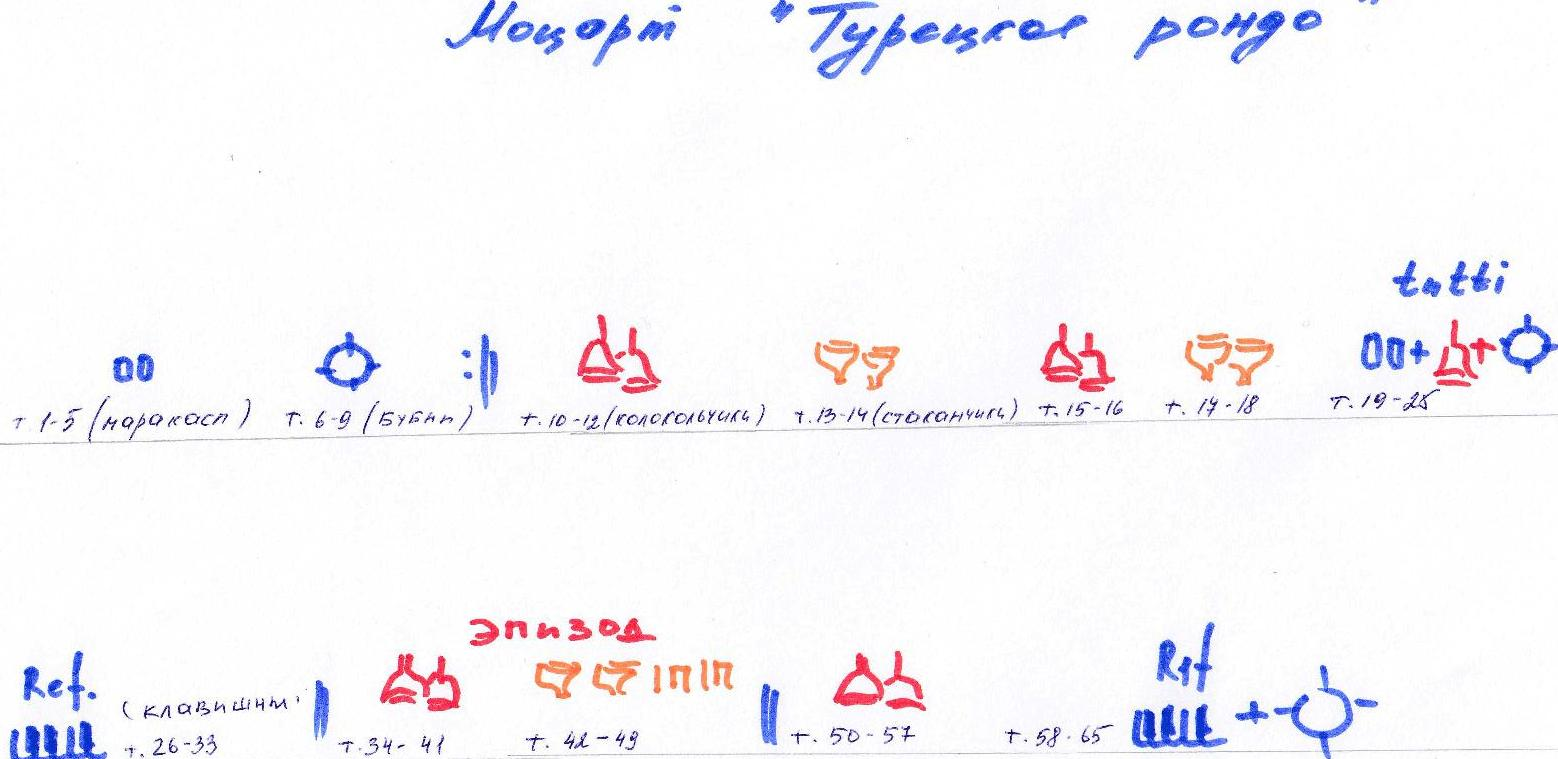 Моцарт "Турецкое рондо"
tutti
т 1-5 (маракасы) т. 6-9 (Бубны) т. 10-12 (колокольчики) т. 13-14 (стаканчики) т. 15-16 т. 17-18 т. 19-25
Эпизод
Ref. (клавишны. Ref
т. 26-33 т. 34-41 т. 42-49 т. 50-57 т. 58-65